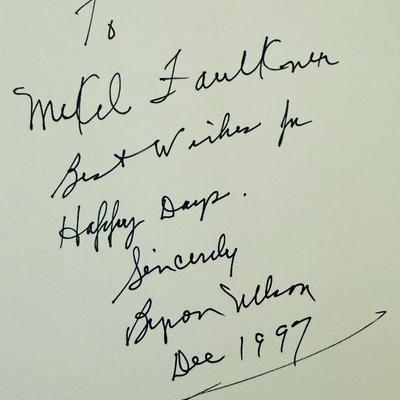 To
McKel Faulkner
Best Wishes for
Happy Days.
Sincerely
Byron Nelson
Dec 1997